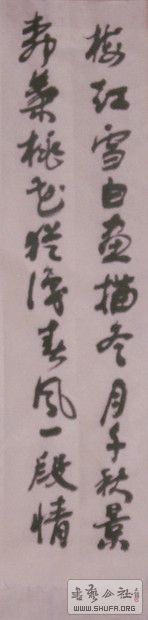 梅红雪白画描冬月千秋景
桃花春风一段情
书艺公社
WWW.SHUFA.ORG